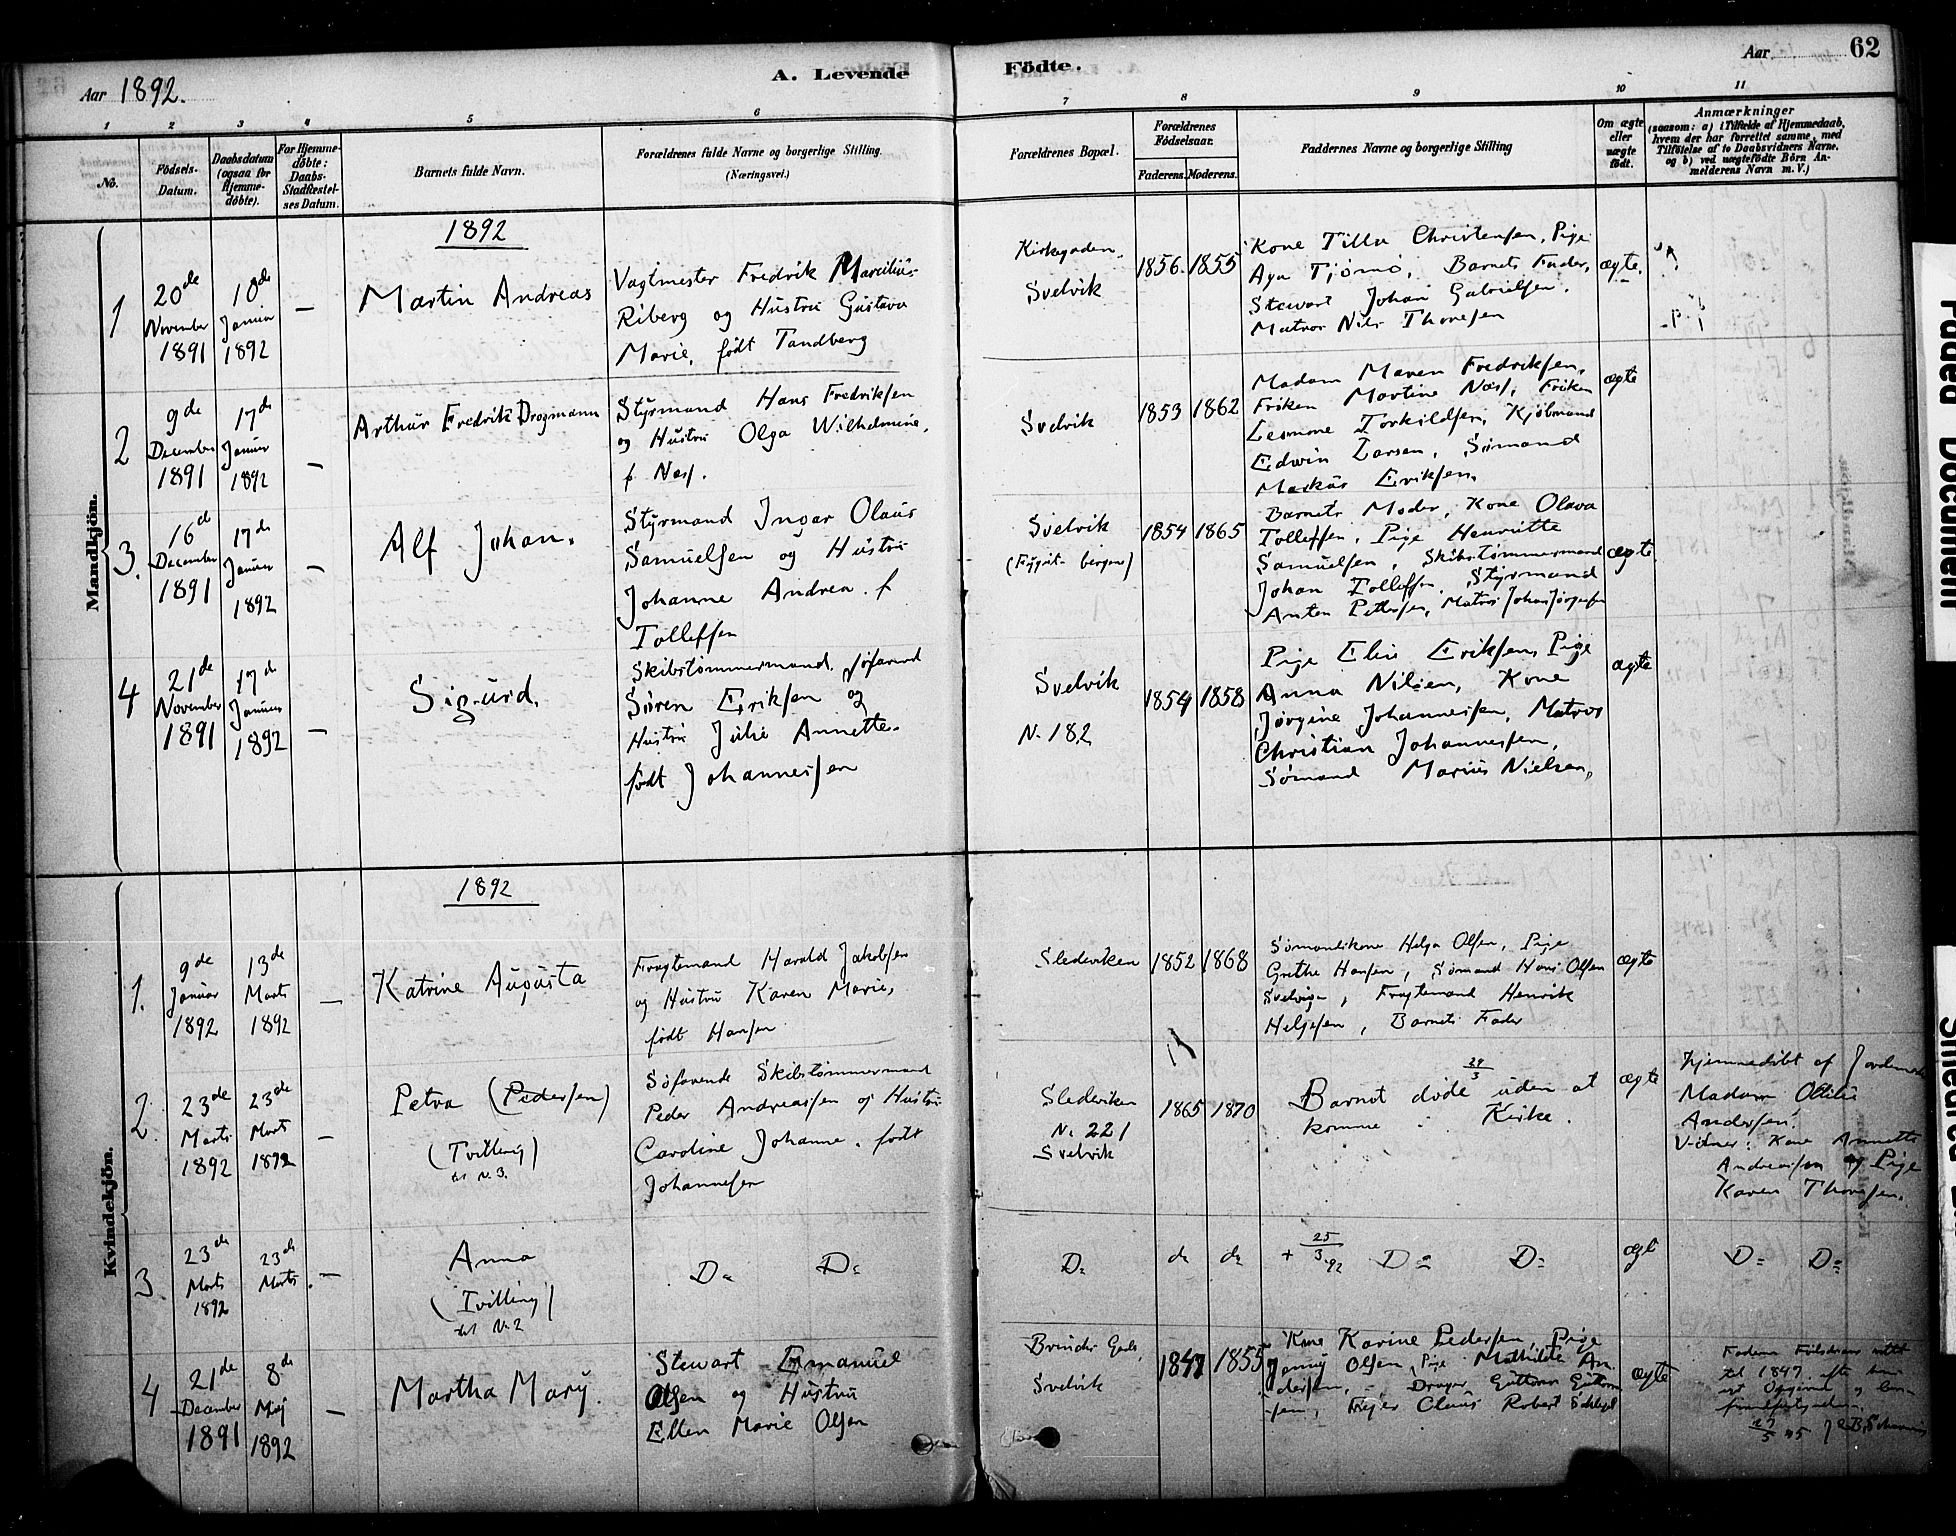 Aar 1892.
A. Levende Födte.
Aar 62
1 2 3 4 5 6 7 8 9 10 11
No.
Födsels-Datum.
Daabsdatum (ogsaa for Hjemme-döbte).
For Hjemme-döbte: Daabs-Stadfæstel-ses Datum.
Barnets fulde Navn.
Forældrenes fulde Navne og borgerlige Stilling.
(Næringsvei.)
Forældrenes Bopæl.
Forældrenes Födselsaar.
Faderens. Moderens.
Faddernes Navne og borgerlige Stilling
Om ægte eller uægte födt.
Anmærkninger
(saasom: a) i Tilfælde af Hjemmedaab,
hvem der har forrettet samme, med
Tilföielse af to Daabsvidners Navne,
og b) ved uægtefödte Börn An-
melderens Navn m. V.)
Mandkjön.
1892
1
20de November 1891
10de Januar 1892
—
Martin Andreas
Vagtmester Fredrik Marcilius
Riberg og Hustru Gustava
Marie, født Tandberg
Kirkegaden,
Svelvik
1856. 1855
Kone Tilla Christensen, Pige
Aga Tjømø, Barnets Fader,
Stewart Johan Gabrielsen.
Matros Nils Thoresen
ægte.
2
9de December 1891
17de Januar 1892
—
Arthur Fredrik Drogmann
Styrmand Hans Fredriksen
og Hustru Olga Wilhelmine,
f. Næss.
Svelvik
1853 1862
Madam Maren Fredriksen,
Frøken Martine Næss, Frøken
Leonore Torkildsen, Kjøbmand
Edwin Larsen, Sømand
Markus Eriksen.
ægte
3.
16d December 1891
17de Januar 1892
—
Alf Johan.
Styrmand Ingar Olaus
Samuelsen og Hustru
Johanne Andrea. f
Tolleffsen
Svelvik
1854 1865
Barnets Moder, Kone Olava
Tolleffsen, Pige Henriette
Samuelsen, Skibstømmermand
Johan Tolleffsen. Styrmand
Anton Pettersen, Matros Johan Jørgensen
ægte.
4
21de November 1891
17de Januar 1892
—
Sigurd.
Skibstømmermand, søfarend
Søren Eriksen og
Hustru Julie Annette.
født Johannessen
Svelvik
N. 182
1854 1858
Pige Elise Eriksen, Pige
Anna Nilsen, Kone
Jørgine Johannessen, Matros
Christian Johannessen,
Sømand Marius Nielsen,
ægte
Kvindekjön.
1892
1.
9de Januar 1892
13de Marts 1892
—
Katrine Augusta
Fragtemand Harald Jakobsen
og Hustru Karen Marie,
født Hansen
Slederiken
1852 1868
Sømandskone Helga Olsen, Pige
Grethe Hansen, Sømand Hans Olsen
Svelvigen, Fragtemand Henrik
Helgesen, Barnets Fader
ægte
2.
23de Marts 1892
23de Marts 1892
—
Petra (Pedersen)
(Tvilling)
til N. 3.
Søfarende Skibstømmermand
Peder Andreassen og Hustru
Caroline Johanne. født
Johannessen
Slederiken
N. 221
Svelvik
1865 1870
24/3
Barnet døde uden at
komme i Kirke.
ægte
Hjemmedøbt af Jordemor
Madam Ottilie
Andersen.
Vidner: Kone Annette
Andreassen og Pige
Karen Thoresen.
3.
23de Marts 1892
23de Marts.
—
Anna
(Tvilling)
til N. 2
Do Do
Do
do do
+ 25/3 92 Do Do
ægte
Do Do
4
21de December 1891
8de Maj 1892
—
Martha Mary.
Stewart Emanuel
Olsen og Hustru
Ellen Marie Olsen
Svelvik
1847 1855
Kone Karine Pedersen, Pige
Jenny Olsen, Pige Mathilde An-
dersen, Drager Guttorm Guttorm-
sen, Claus Robert
ægte
til 1847 efter
27/5 45